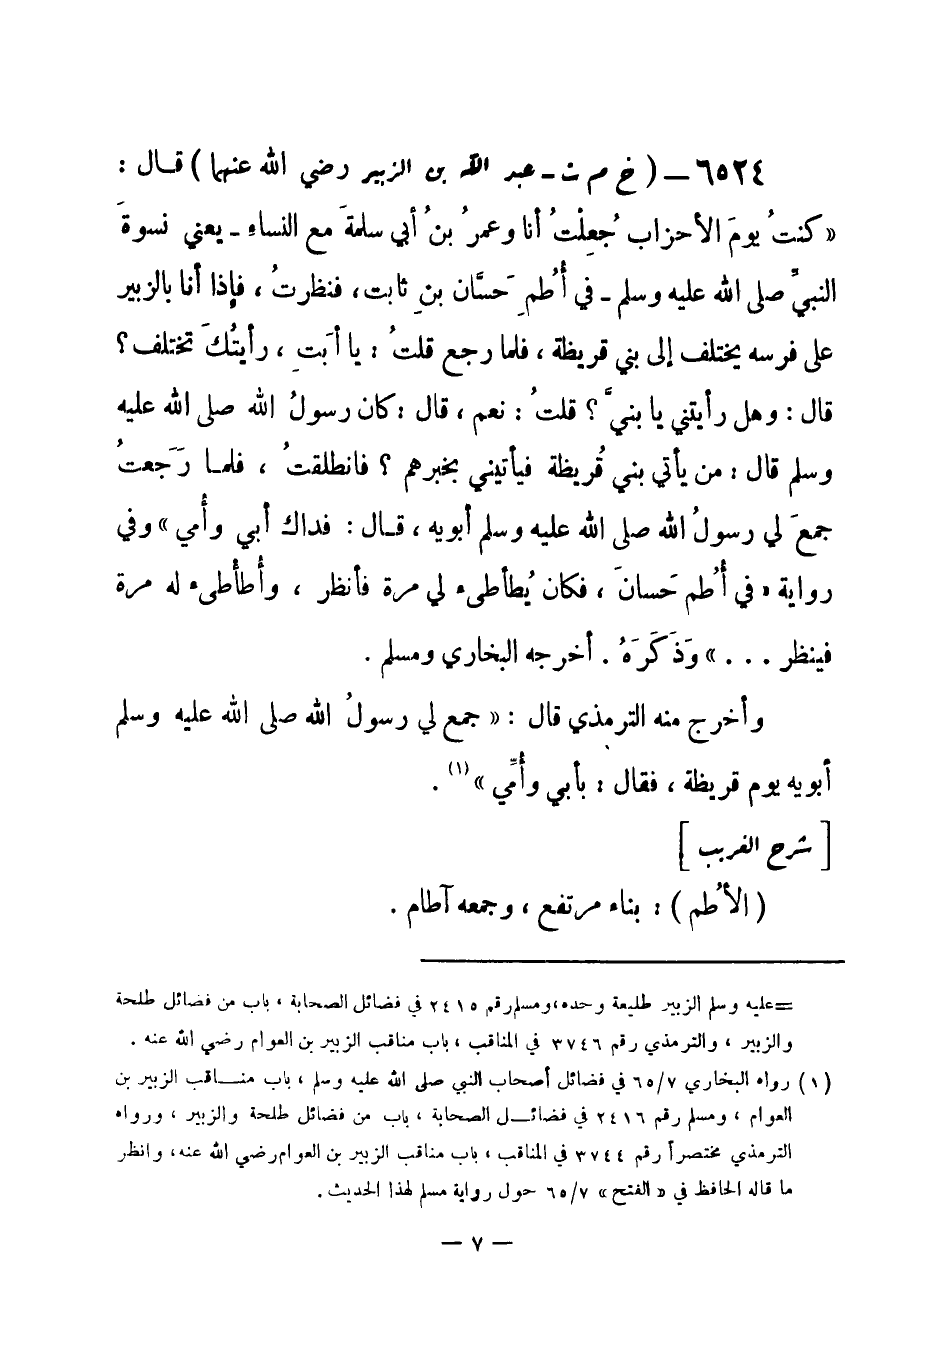 ٦٥٢٤ – ( خ م ت - عبد الله بن الزبير رضي الله عنهما ) قـال :
« كنتُ يومَ الأحزاب جُعِلْتُ أنا وعمرُ بنُ أبي سلمةَ مع النساءِ - يعني نسوةَ
النبيِّ صلى الله عليه وسلم - في أُطمِ حَسَّان بنِ ثابت، فنظرتُ ، فإذا أنا بالزبير
على فرسه يختلف إلى بني قريظة ، فلما رجع قلتُ : يا أبَتِ ، رأيتُكَ تختلف ؟
قال : وهل رأيتني يا بنيَّ ؟ قلتُ : نعم ، قال : كان رسولُ الله صلى الله عليه
وسلم قال : من يأتي بني قُريظة فيأتيني بخبرهم ؟ فانطلقتُ ، فلمـا رَجَعتُ
جمعَ لي رسولُ الله صلى الله عليه وسلم أبويه ، قـال : فداك أبي وأُمي » وفي
رواية « في أُطم حَسانَ ، فكان يُطأطىء لي مرة فأنظر ، وأُطأطىء له مرة
فينظر . . . » وَذَكَرَهُ . أخرجه البخاري ومسلم .
وأخرج منه الترمذي قال : « جمع لي رسولُ الله صلى الله عليه وسلم
أبويه يوم قريظة ، فقال : بأبي وأُمِّي » (١) .
[ شرح الغريب ]
( الأُطم ) : بناء مرتفع ، وجمعه آطام .
= عليه وسلم الزبير طليعة وحده، ومسلم رقم ٢٤١٥ في فضائل الصحابة ، باب من فضائل طلحة
والزبير ، والترمذي رقم ٣٧٤٦ في المناقب ، باب مناقب الزبير بن العوام رضي الله عنه .
(١) رواه البخاري ٦٥/٧ في فضائل أصحاب النبي صلى الله عليه وسلم ، باب منـاقب الزبير بن
العوام ، ومسلم رقم ٢٤١٦ في فضائـل الصحابة ، باب من فضائل طلحة والزبير ، ورواه
الترمذي مختصراً رقم ٣٧٤٤ في المناقب ، باب مناقب الزبير بن العوام رضي الله عنه، وانظر
ما قاله الحافظ في « الفتح » ٦٥/٧ حول رواية مسلم لهذا الحديث .
– ٧ –